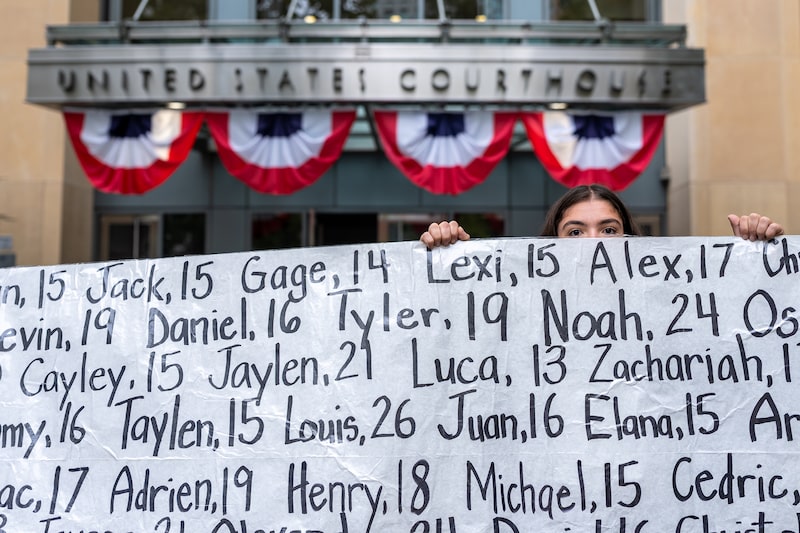 UNITED STATES COURTHOUSE
15 Jack, 15 Gage, 14 Lexi, 15 Alex, 17
19 Daniel, 16 Tyler, 19 Noah, 24
Cayley, 15 Jaylen, 21 Luca, 13 Zachariah,
16 Taylen, 15 Louis, 26 Juan, 16 Elana, 15
17 Adrien, 19 Henry, 18 Michael, 15 Cedric,